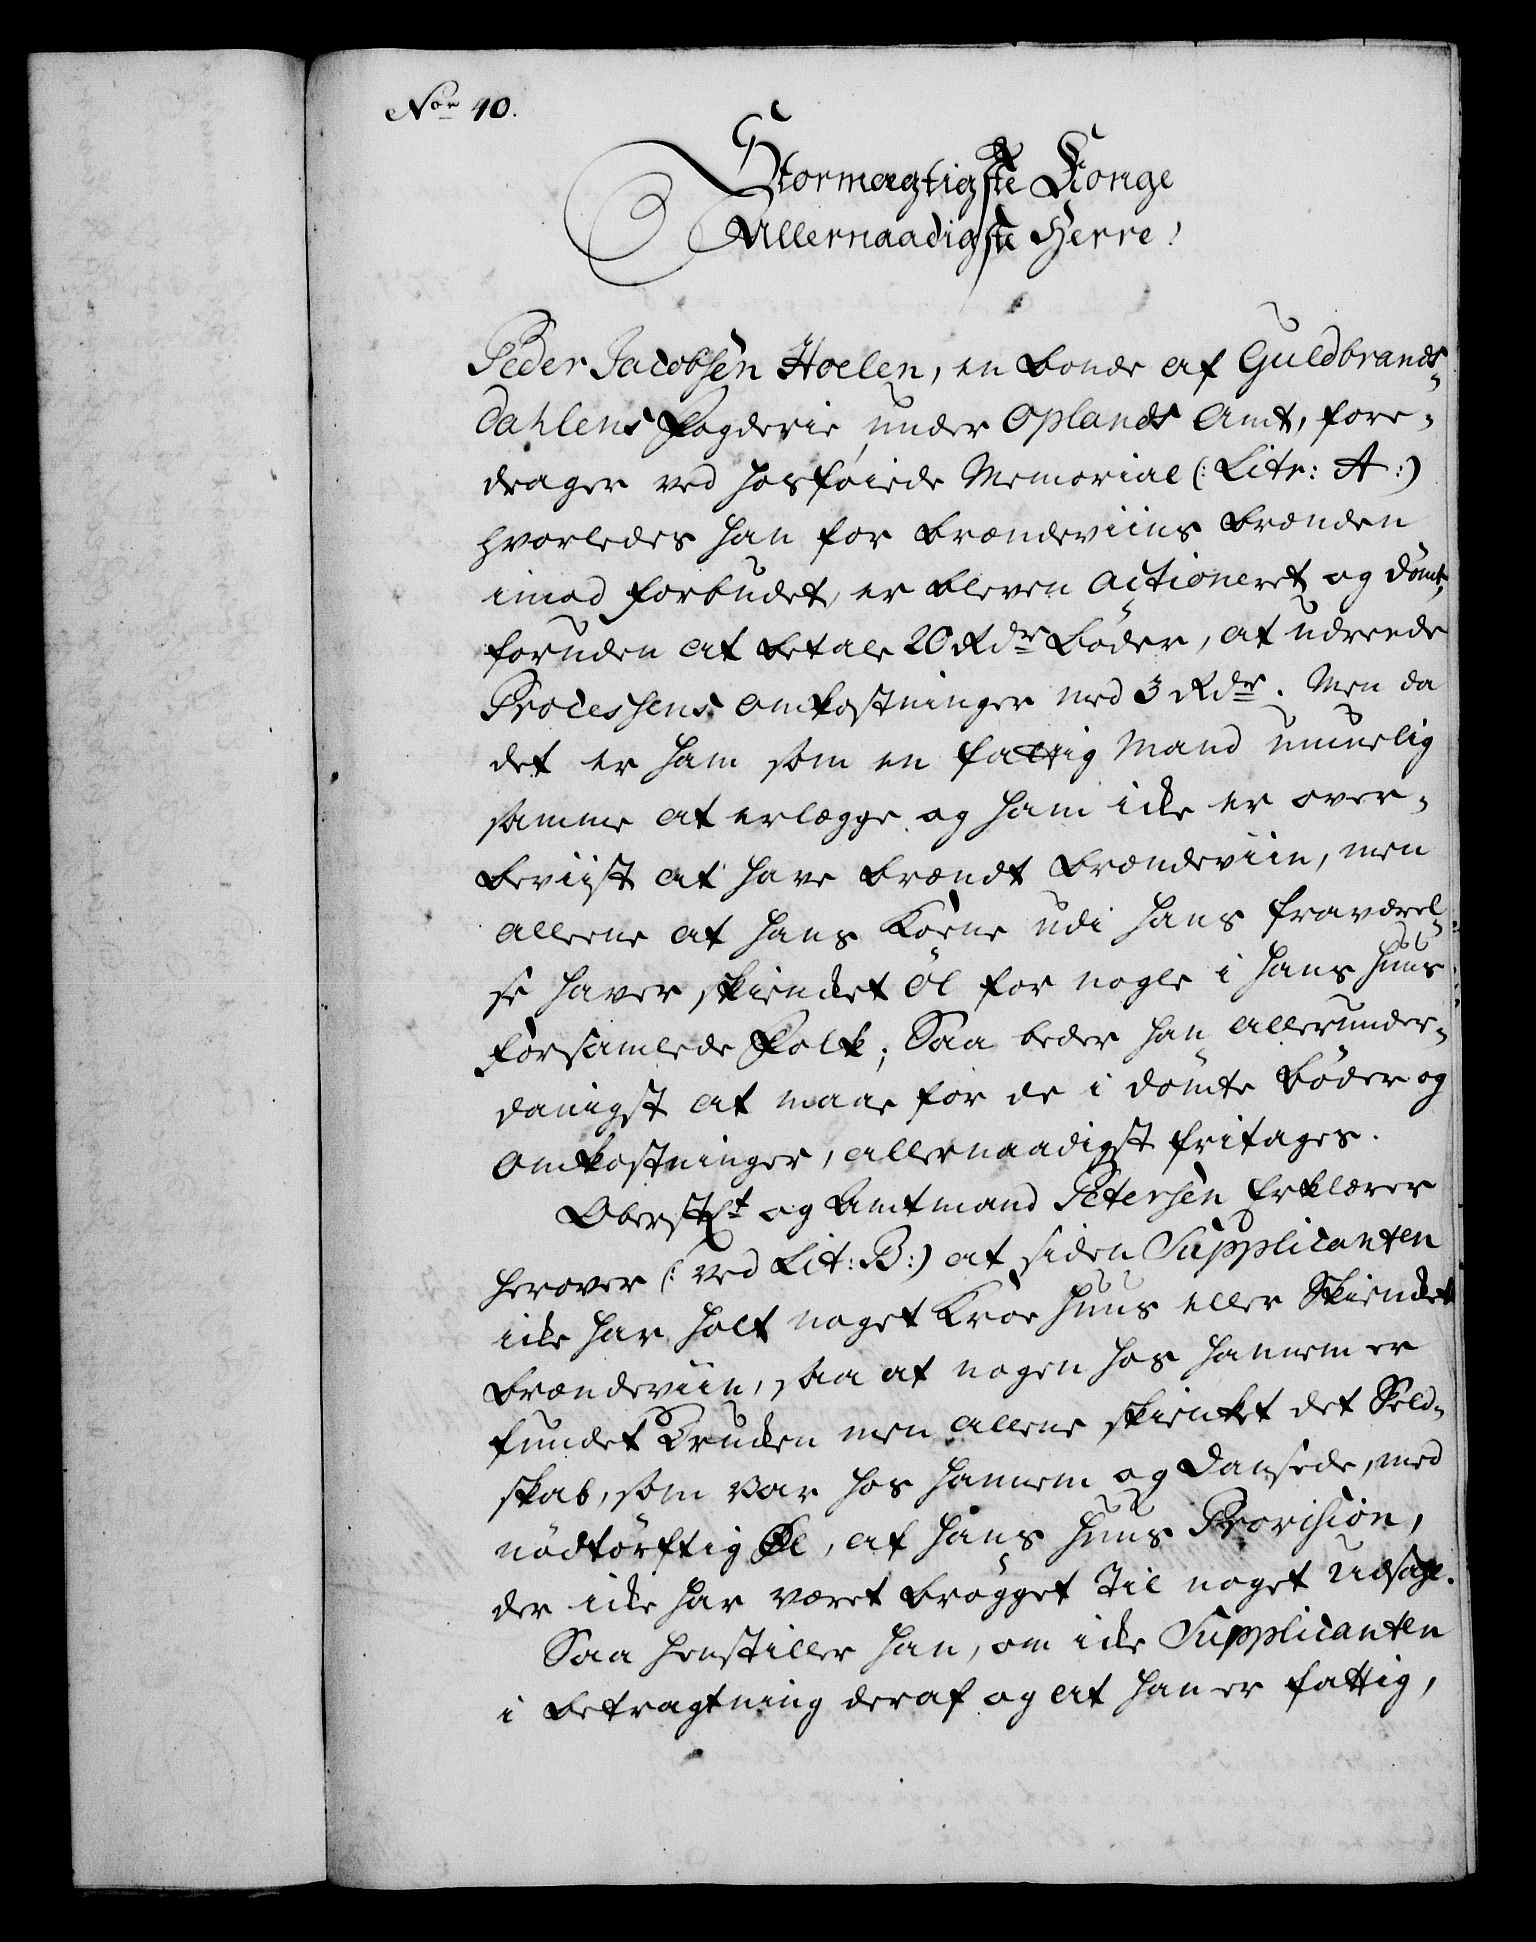 Nor 10.
Stormægtigste Konge
Allernaadigste Herre!
Peder Jacobsen Hoelen, en bonde af Guldbrands-
dahlens Fogderie under Oplands Amt, fore-
drager ved hosføiede Memorial (: Litr: A :)
hvorledes han for Brændeviins Brænden
imod forbudet, er bleven actioneret og dömt,
foruden at betale 20 Rdr Böder, at udreede
Processens Omkostninger med 3 Rdr. Men da
det er ham som en fattig Mand umuelig
samme at erlægge og ham icke er over-
beviist at have brændt Brændeviin, men
alleene at hans Kone udi hans fraværel-
se haver skiencket Öl for nogle i hans Huus
forsamlede Folk; Saa beder han allerunder-
danigst at maae for de idömte Böder og
Omkostninger, allernaadigst fritages.
Oberstlt og Amtmand Petersen Erklærer
herover (: ved Lit: B :) at siden Supplicanten
icke har holt noget Kroe Huus eller Skiencket
Brændeviin, saa at nogen hos hannem er
fundet Drucken men allene skiencket det Sels-
skab, som var hos hannem og Dansede, med
nödtörftig Øl, af hans Huus Provision,
der icke har været brögget til noget Udsalg.
Saa henstiller han, om icke Supplicanten
i betragtning deraf og at han er fattig,